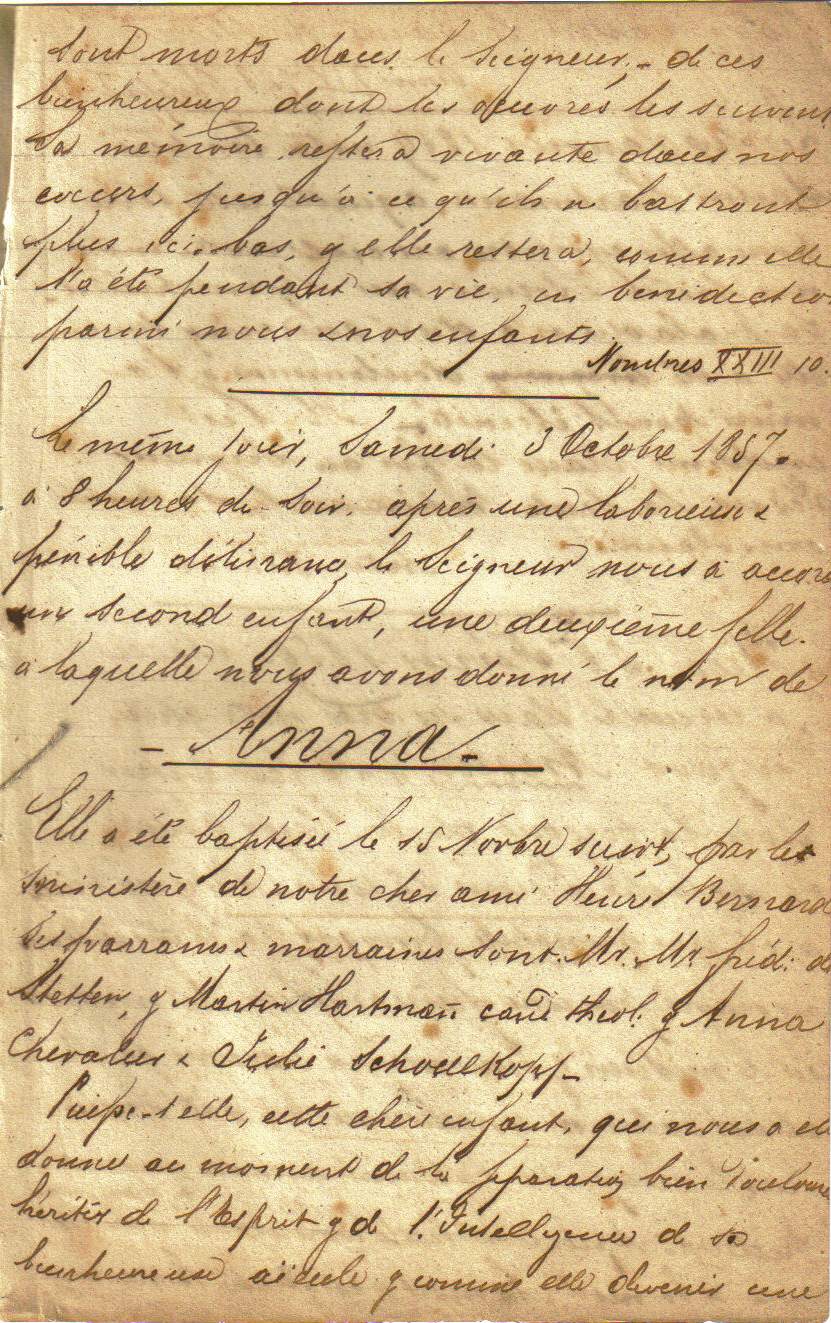 sont morts dans le Seigneur, - de ces
bienheureux dont les œuvres les suivent
Sa mémoire restera vivante dans nos
cœurs, jusqu'à ce qu'ils ne battront
plus ici-bas, & elle restera, comme elle
l'a été pendant sa vie, en bénédiction
parmi nous & nos enfants.
Nombres XXIII 10.
Le même jour, Samedi 3 Octobre 1857.
à 8 heures du Soir, après une laborieuse &
pénible délivrance, le Seigneur nous a accor
un second enfant, une deuxième fille.
à laquelle nous avons donné le nom de
- Anna. -
Elle a été baptisée le 15 Novbre suivt, par le
ministère de notre cher ami Henri Bernard
Ses parrains & marraines sont. Mr. Mr. fréd: de
Stetten, & Martin Hartmañ cand theol. & Anna
Chevalier & Julie Schoulkopf -
Puisse-t-elle, cette chère enfant, qui nous a été
donnée au moment de la séparation bien douloure
hériter de l'Esprit & de l'Intelligence de sa
bienheureuse aïeule & comme elle devenir une